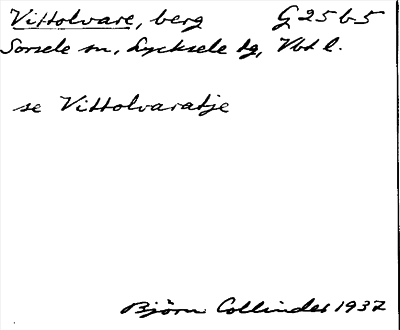 Vittolvare, berg G 25 b 5
Sorsele sn, Lycksele tg, Vbt l.
se Vittolvaratje
Björn Collinder 1937